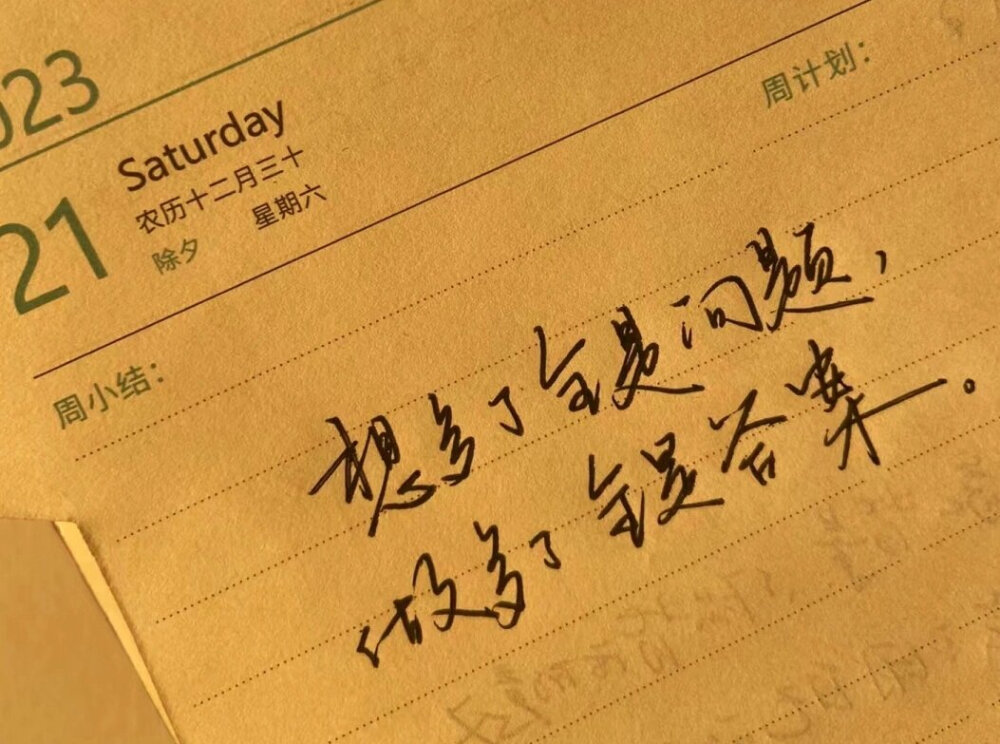 2023
21
Saturday
农历十二月三十
除夕 星期六
周计划：
周小结：
想多了全是问题，
做多了全是答案。